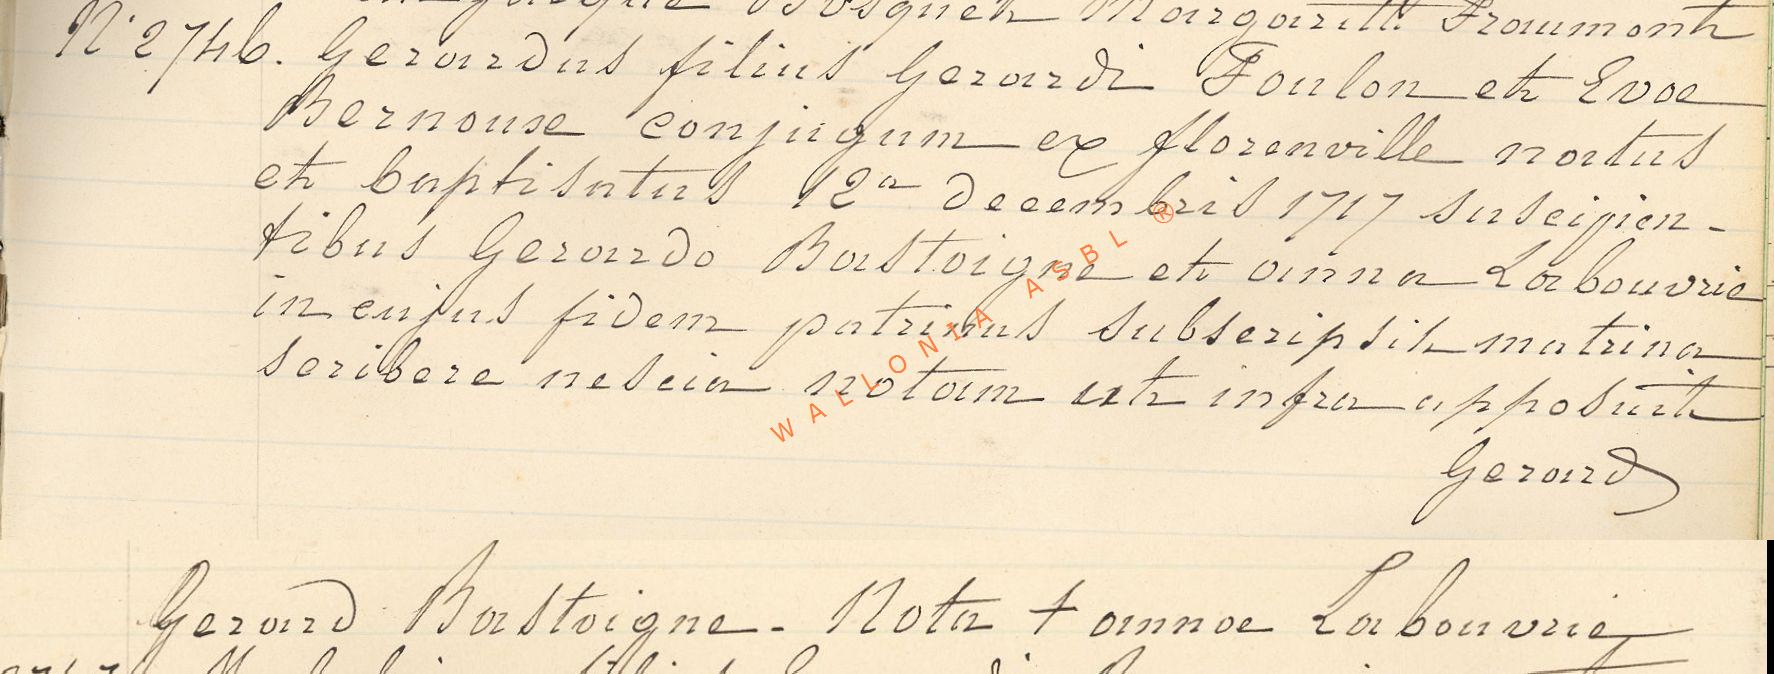 Margaritt Fraumont
N° 2746. Gerardus filius Gerardi Foulon et Evae
Bernouse conjugum ex florenville natus
et baptisatus 12a decembris 1717 suscipien-
tibus Gerardo Bastoigne et anna Labouvrie
in cujus fidem patrinus subscripsit matrina
scribere nescia notam ut infra apposuit
Gerard
Gerard Bastoigne - Nota + annae Labouvrie
WALLONIA ASBL ®